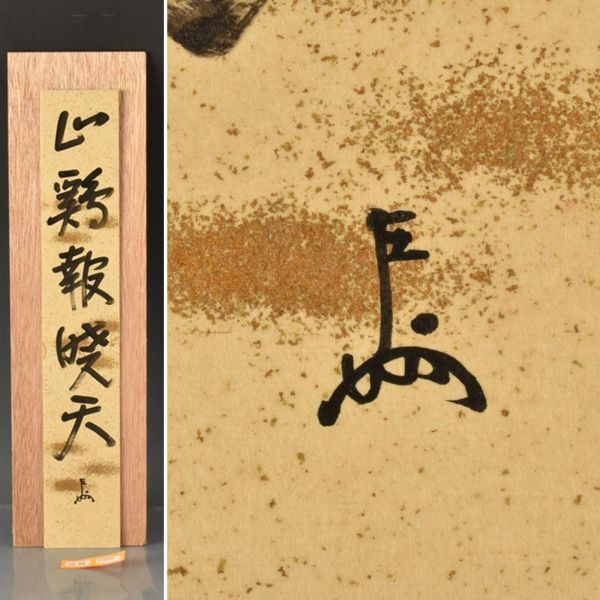 山鶏報暁天